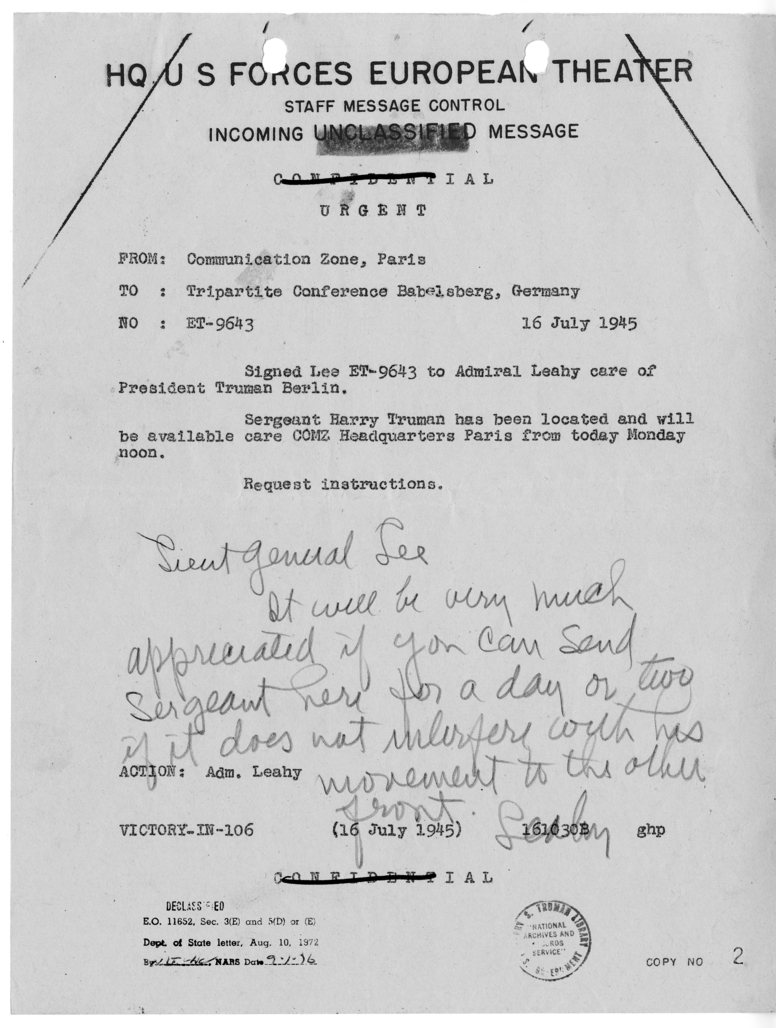 HQ U S FORCES EUROPEAN THEATER
STAFF MESSAGE CONTROL
INCOMING UNCLASSIFIED MESSAGE
CONFIDENTIAL
URGENT
FROM: Communication Zone, Paris
TO : Tripartite Conference Babelsberg, Germany
NO : ET-9643 16 July 1945
Signed Lee ET-9643 to Admiral Leahy care of
President Truman Berlin.
Sergeant Harry Truman has been located and will
be available care COMZ Headquarters Paris from today Monday
noon.
Request instructions.
Lieut General Lee
It will be very much
appreciated if you can send
Sergeant here for a day or two
if it does not interfere with his
movement to the other
front. Leahy
ACTION: Adm. Leahy
VICTORY-IN-106 (16 July 1945) 161030B ghp
CONFIDENTIAL
DECLASSIFIED
E.O. 11652, Sec. 3(E) and 5(D) or (E)
Dept. of State letter, Aug. 10, 1972
By NARS Date 9-1-76
S. TRUMAN LIBRARY
"NATIONAL
ARCHIVES AND
RDS
SERVICE"
COPY NO 2